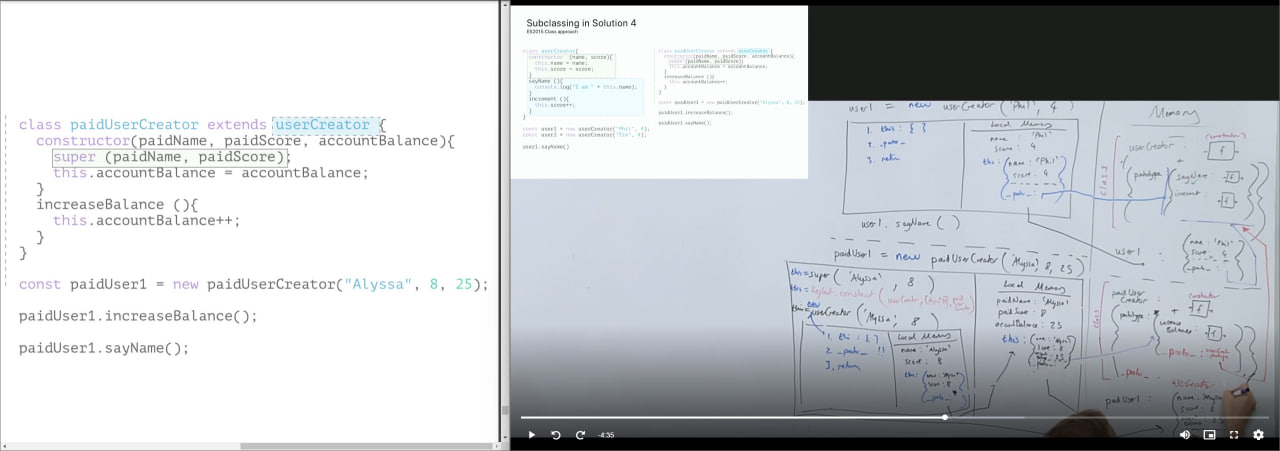 class paidUserCreator extends userCreator {
constructor(paidName, paidScore, accountBalance){
super (paidName, paidScore);
this.accountBalance = accountBalance;
}
increaseBalance (){
this.accountBalance++;
}
}
const paidUser1 = new paidUserCreator("Alyssa", 8, 25);
paidUser1.increaseBalance();
paidUser1.sayName();
Subclassing in Solution 4
ES2015 Class approach
class userCreator{
constructor (name, score){
this.name = name;
this.score = score;
}
sayName (){
console.log("I am " + this.name);
}
increment (){
this.score++;
}
}
const user1 = new userCreator("Phil", 4);
const user2 = new userCreator("Tim", 4);
user1.sayName()
class paidUserCreator extends userCreator {
constructor(paidName, paidScore, accountBalance){
super (paidName, paidScore);
this.accountBalance = accountBalance;
}
increaseBalance (){
this.accountBalance++;
}
}
const paidUser1 = new paidUserCreator("Alyssa", 8, 25);
paidUser1.increaseBalance();
paidUser1.sayName();
user1 = new userCreator ('Phil', 4)
1. this : { }
2. _proto_
3. return
Local Memory
name : 'Phil'
score : 4
this : { name : 'Phil'
score : 4
_proto_ :
user1. sayName ( )
paidUser1 = new paidUserCreator ('Alyssa', 8, 25)
this = super ( 'Alyssa' , 8 )
this = Reflect.construct (
userCreator ('Alyssa' , 8 )
1. this : { }
2. _proto_ !!
3. return
Local Memory
name : 'Alyssa'
score : 8
this : { name : 'Alyssa'
score : 8
_proto_
Local Memory
paidName : 'Alyssa'
paidScore : 8
accountBalance : 25
this :
Memory
class
userCreator : (constructor)
f
+
prototype : { sayName : f
increment : f
user1 : { name : 'Phil'
score : 4
_proto_ :
class
paidUser
Creator : constructor
+ f
prototype : increase
Balance : f
_proto_ :
_proto_ :
userCreator
paidUser1 : { name : 'Alyssa'
score : 8
-4:35